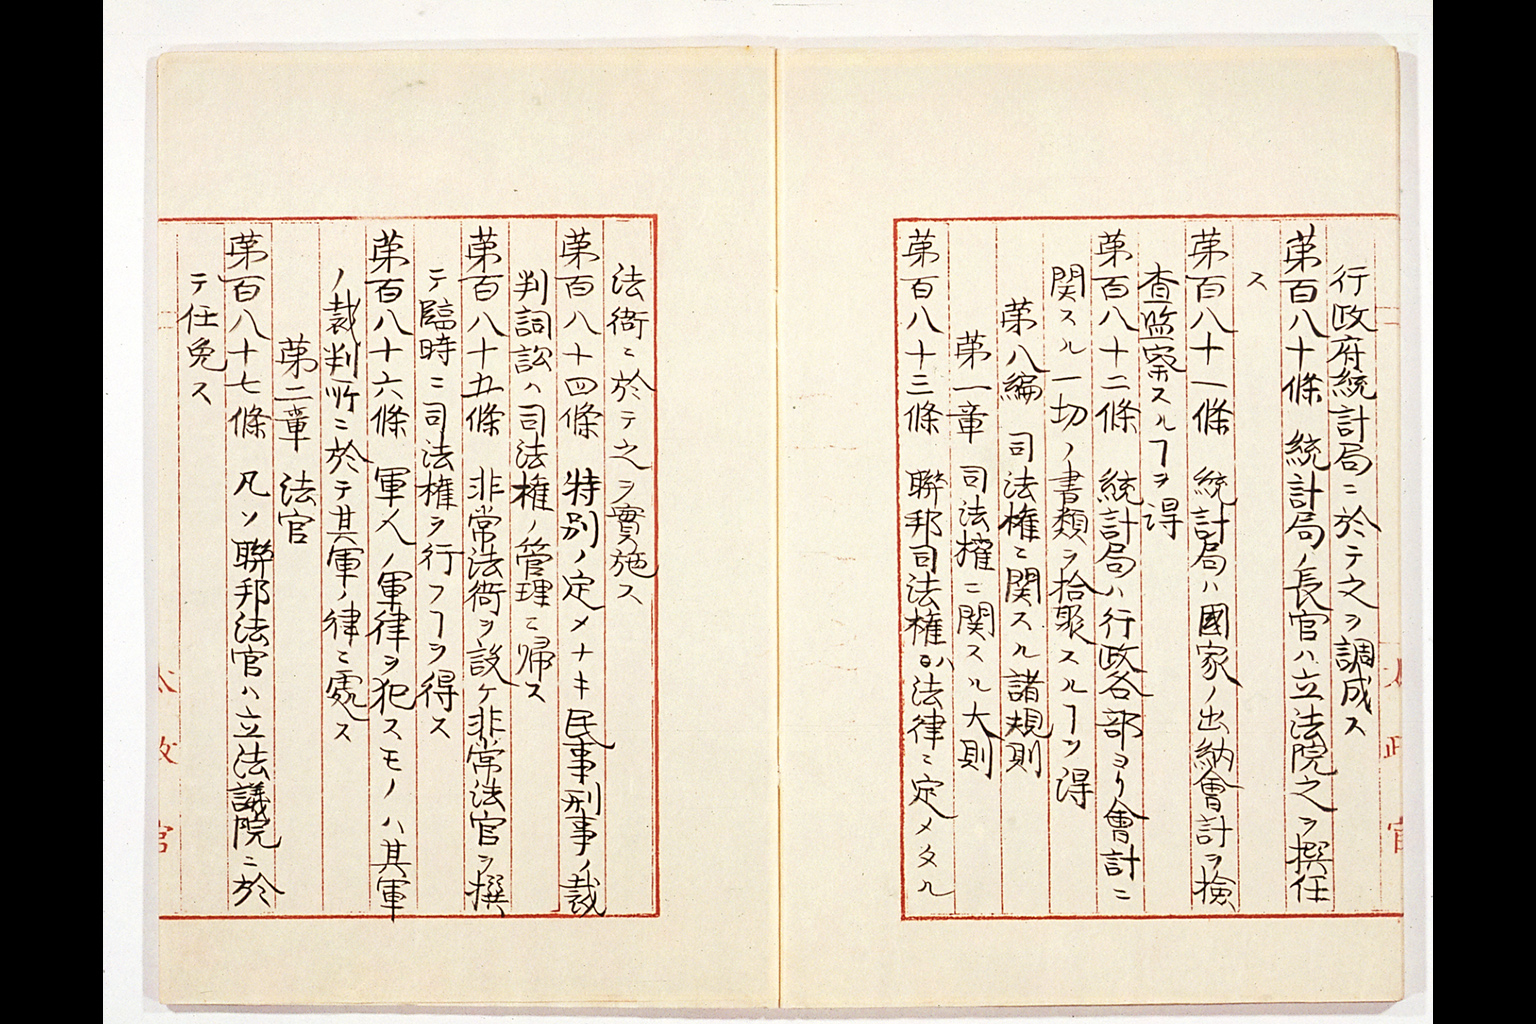 行政府統計局ニ於テ之ヲ調成ス
第百八十條　統計局ノ長官ハ立法院之ヲ撰任
ス
第百八十一條　統計局ハ國家ノ出納會計ヲ檢
査監察スルヿヲ得
第百八十二條　統計局ハ行政各部ヨリ會計ニ
関スル一切ノ書類ヲ拾聚スルヿヲ得
第八編　司法権ニ関スル諸規則
第一章　司法権ニ関スル大則
第百八十三條　聯邦司法権ハ法律ニ定メタル
法衙ニ於テ之ヲ實施ス
第百八十四條　特別ノ定メナキ民事刑事ノ裁
判詞訟ハ司法権ノ管理ニ帰ス
第百八十五條　非常法衙ヲ設ケ非常法官ヲ撰
テ臨時ニ司法権ヲ行フヿヲ得ス
第百八十六條　軍人ノ軍律ヲ犯スモノハ其軍
ノ裁判所ニ於テ其軍ノ律ニ處ス
第二章　法官
第百八十七條　凡ソ聯邦法官ハ立法議院ニ於
テ任免ス